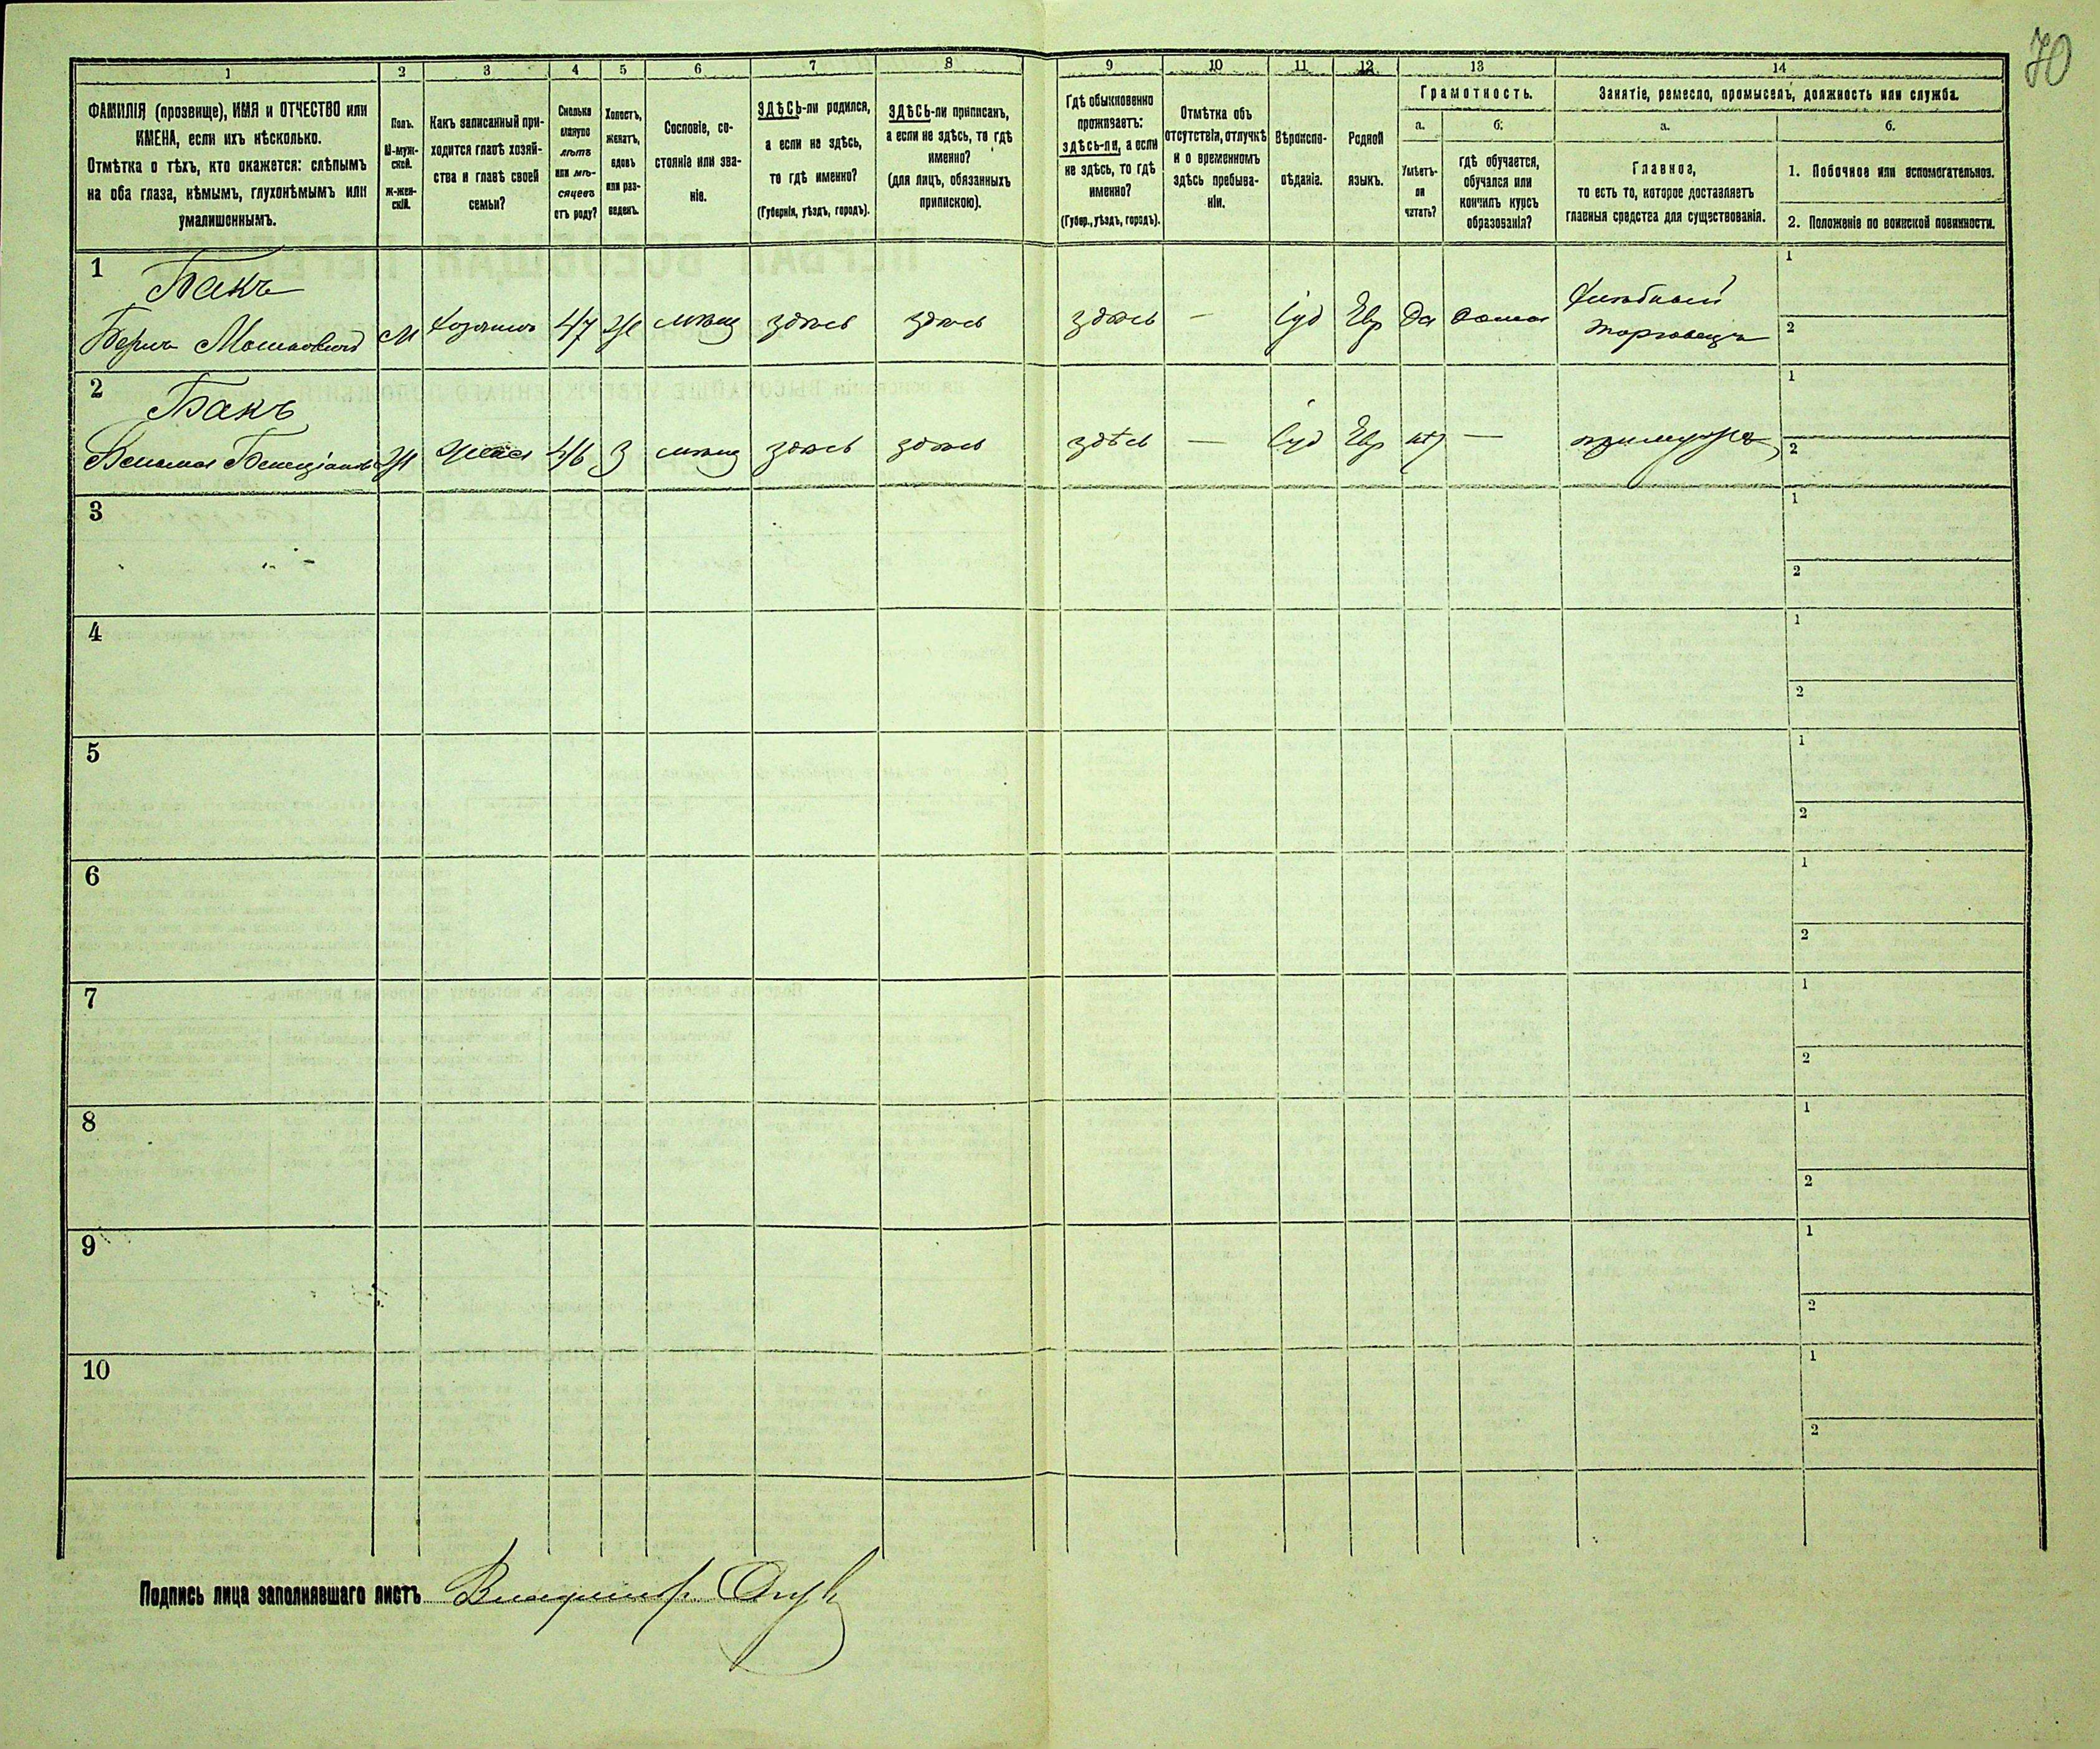 70
1 2 3 4 5 6 7 8 9 10 11 12 13 14
ФАМИЛІЯ (прозвище), ИМЯ и ОТЧЕСТВО или
ИМЕНА, если ихъ нѣсколько.
Отмѣтка о тѣхъ, кто окажется: слѣпымъ
на оба глаза, нѣмымъ, глухонѣмымъ или
умалишоннымъ.
Полъ.
М-муж-
ской.
Ж-жен-
скій.
Какъ записанный при-
ходится главѣ хозяй-
ства и главѣ своей
семьи?
Сколько
минуло
лѣтъ
или мѣ-
сяцевъ
отъ роду?
Холостъ,
женатъ,
вдовъ
или раз-
веденъ.
Сословіе, со-
стояніе или зва-
ніе.
ЗДѢСЬ-ли родился,
а если не здѣсь,
то гдѣ именно?
(Губернія, уѣздъ, городъ).
ЗДѢСЬ-ли приписанъ,
а если не здѣсь, то гдѣ
именно?
(для лицъ, обязанныхъ
припискою).
Гдѣ обыкновенно
проживаетъ:
здѣсь-ли, а если
не здѣсь, то гдѣ
именно?
(Губер., уѣздъ, городъ).
Отмѣтка объ
отсутствіи, отлучкѣ
и о временномъ
здѣсь пребыва-
ніи.
Вѣроиспо-
вѣданіе.
Родной
языкъ.
Грамотность.
а.
Умѣетъ-
ли
читать?
б.
гдѣ обучается,
обучался или
кончилъ курсъ
образованія?
Занятіе, ремесло, промыселъ, должность или служба.
а.
Главное,
то есть то, которое доставляетъ
главныя средства для существованія.
б.
1. Побочное или вспомогательное.
2. Положеніе по воинской повинности.
1
Бакъ
Берко Мошковичъ М хозяинъ 47 Ж мѣщ здѣсь здѣсь здѣсь — Іуд Евр да дома
Хлѣбный
торговецъ
1
2
2
Бакъ
Ж жена 46 З мѣщ здѣсь здѣсь здѣсь — Іуд Евр нѣт — при мужѣ
1
2
3
1
2
4
1
2
5
1
2
6
1
2
7
1
2
8
1
2
9
1
2
10
1
2
Подпись лица заполнявшаго листъ Владимір